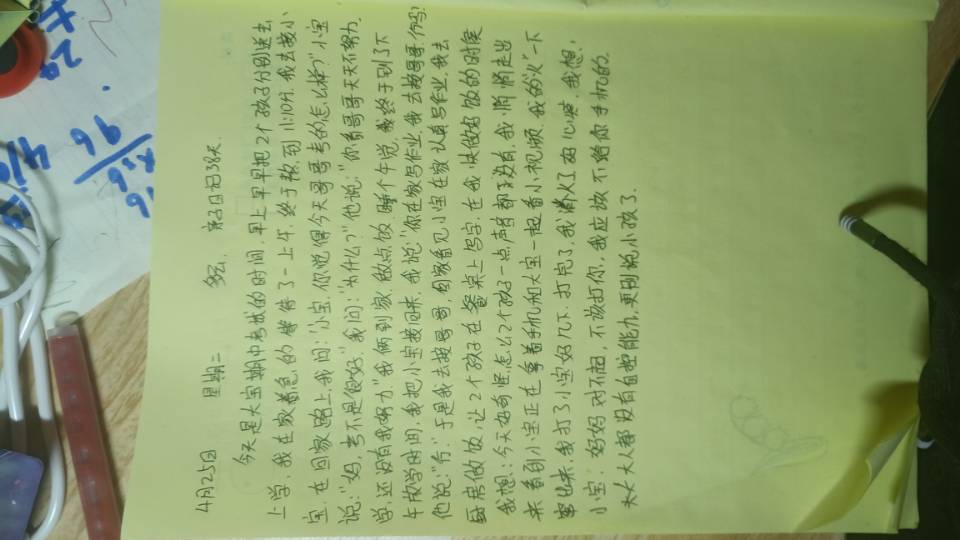 4月25日 星期二 多云 第2日记38天
今天是大宝期中考试的时间,早上早早把2个孩子分别送去
上学,我在家着急的等待了一上午,终于熬到11:10分,我去接小
宝,在回家路上,我问:"小宝,你觉得今天哥哥考的怎么样?"小宝
说:"妈,考不是很好."我问:"为什么?"他说:"你看哥哥天天不努力
学,还没有我努力."我俩到家,做点饭,睡个午觉,我终于到了下
午放学时间,我把小宝接回来,我说:"你在家写作业,我去接哥哥,行吗?
他说:"行."于是我去接哥哥,回家看见小宝在家认真写作业,我去
厨房做饭,让2个孩子在餐桌上写字,在我快做好饭的时候
我想:今天好奇怪,怎么2个孩子一点声音都没有,我悄悄走出
来看到小宝正在拿着手机和大宝一起看小视频,我的"火"一下
窜出来,我打了小宝好几下,打完了,我消火了,好心疼,我想,
小宝:妈妈对不起,不该打你,我应该不给你手机的.
大大人都没有自控能力,更别说小孩了.
96